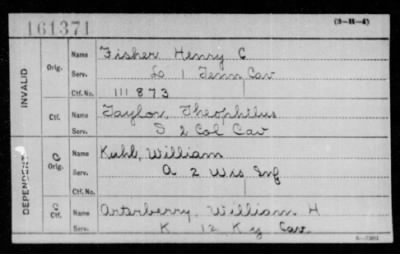 161371
(3-H-4)
INVALID
Orig. Name Fisher Henry C
Serv. L 1 Tenn Cav
Ctf. No. 111873
Ctf. Name Taylor, Theophilus
Serv. D 2 Col Cav
DEPENDENT
C Orig. Name Kuhl, William
Serv. A 2 Wis Inf
Ctf. No.
C Ctf. Name Arterberry, William H
Serv. K 12 Ky Cav.